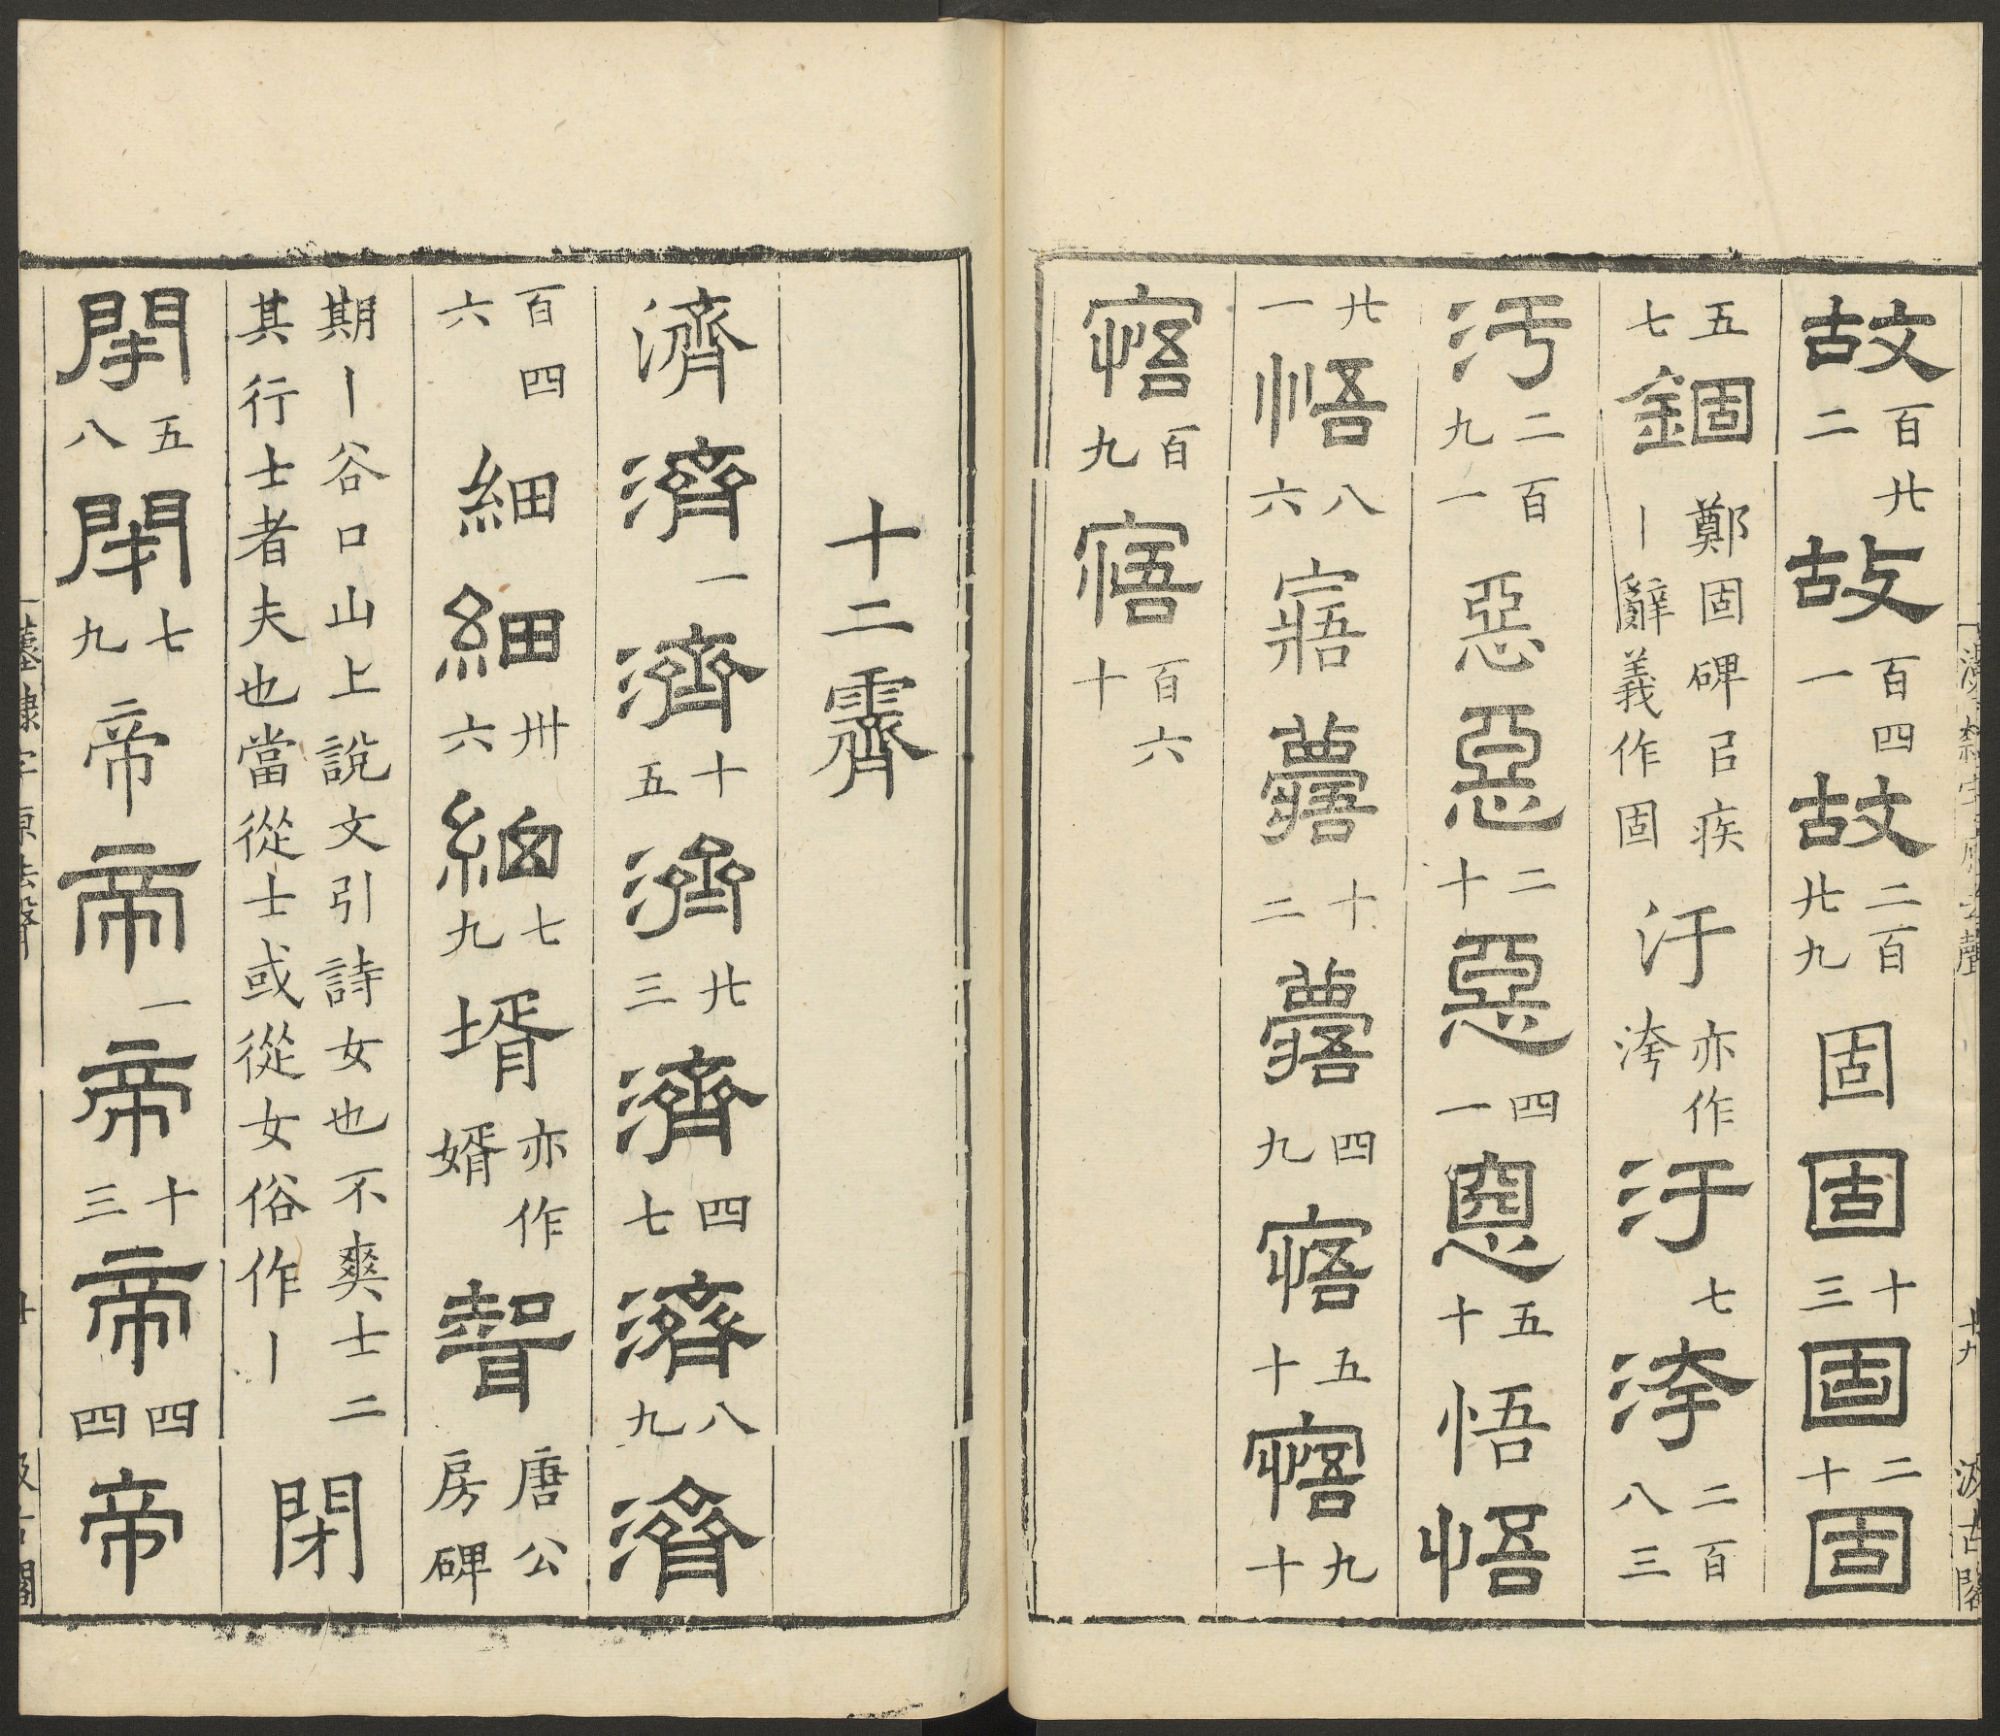 故百廿二故百四一故二百廿九固固十三固二十固
五七錮鄭固碑㠯疾丨辭義作固汙亦作洿汙七洿二百八三
汚二百九一惡惡二十惡四一惡五十悟悟
廿一悟八六寤寤十二寤四九寤五十寤九十
寤百九寤百六十
十二霽
濟濟一濟十五濟廿三濟四七濟八九濟
百四六細細卅六細七九壻亦作婿聟唐公房碑
期丨谷口山上說文引詩女也不爽士二其行士者夫也當從士或從女俗作丨閉
閉五八閉七九帝帝一帝十三帝四四帝
漢隸字原去聲
廿九
汲古閣